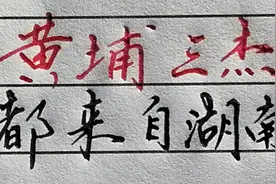 黄埔三杰
都来自湖南